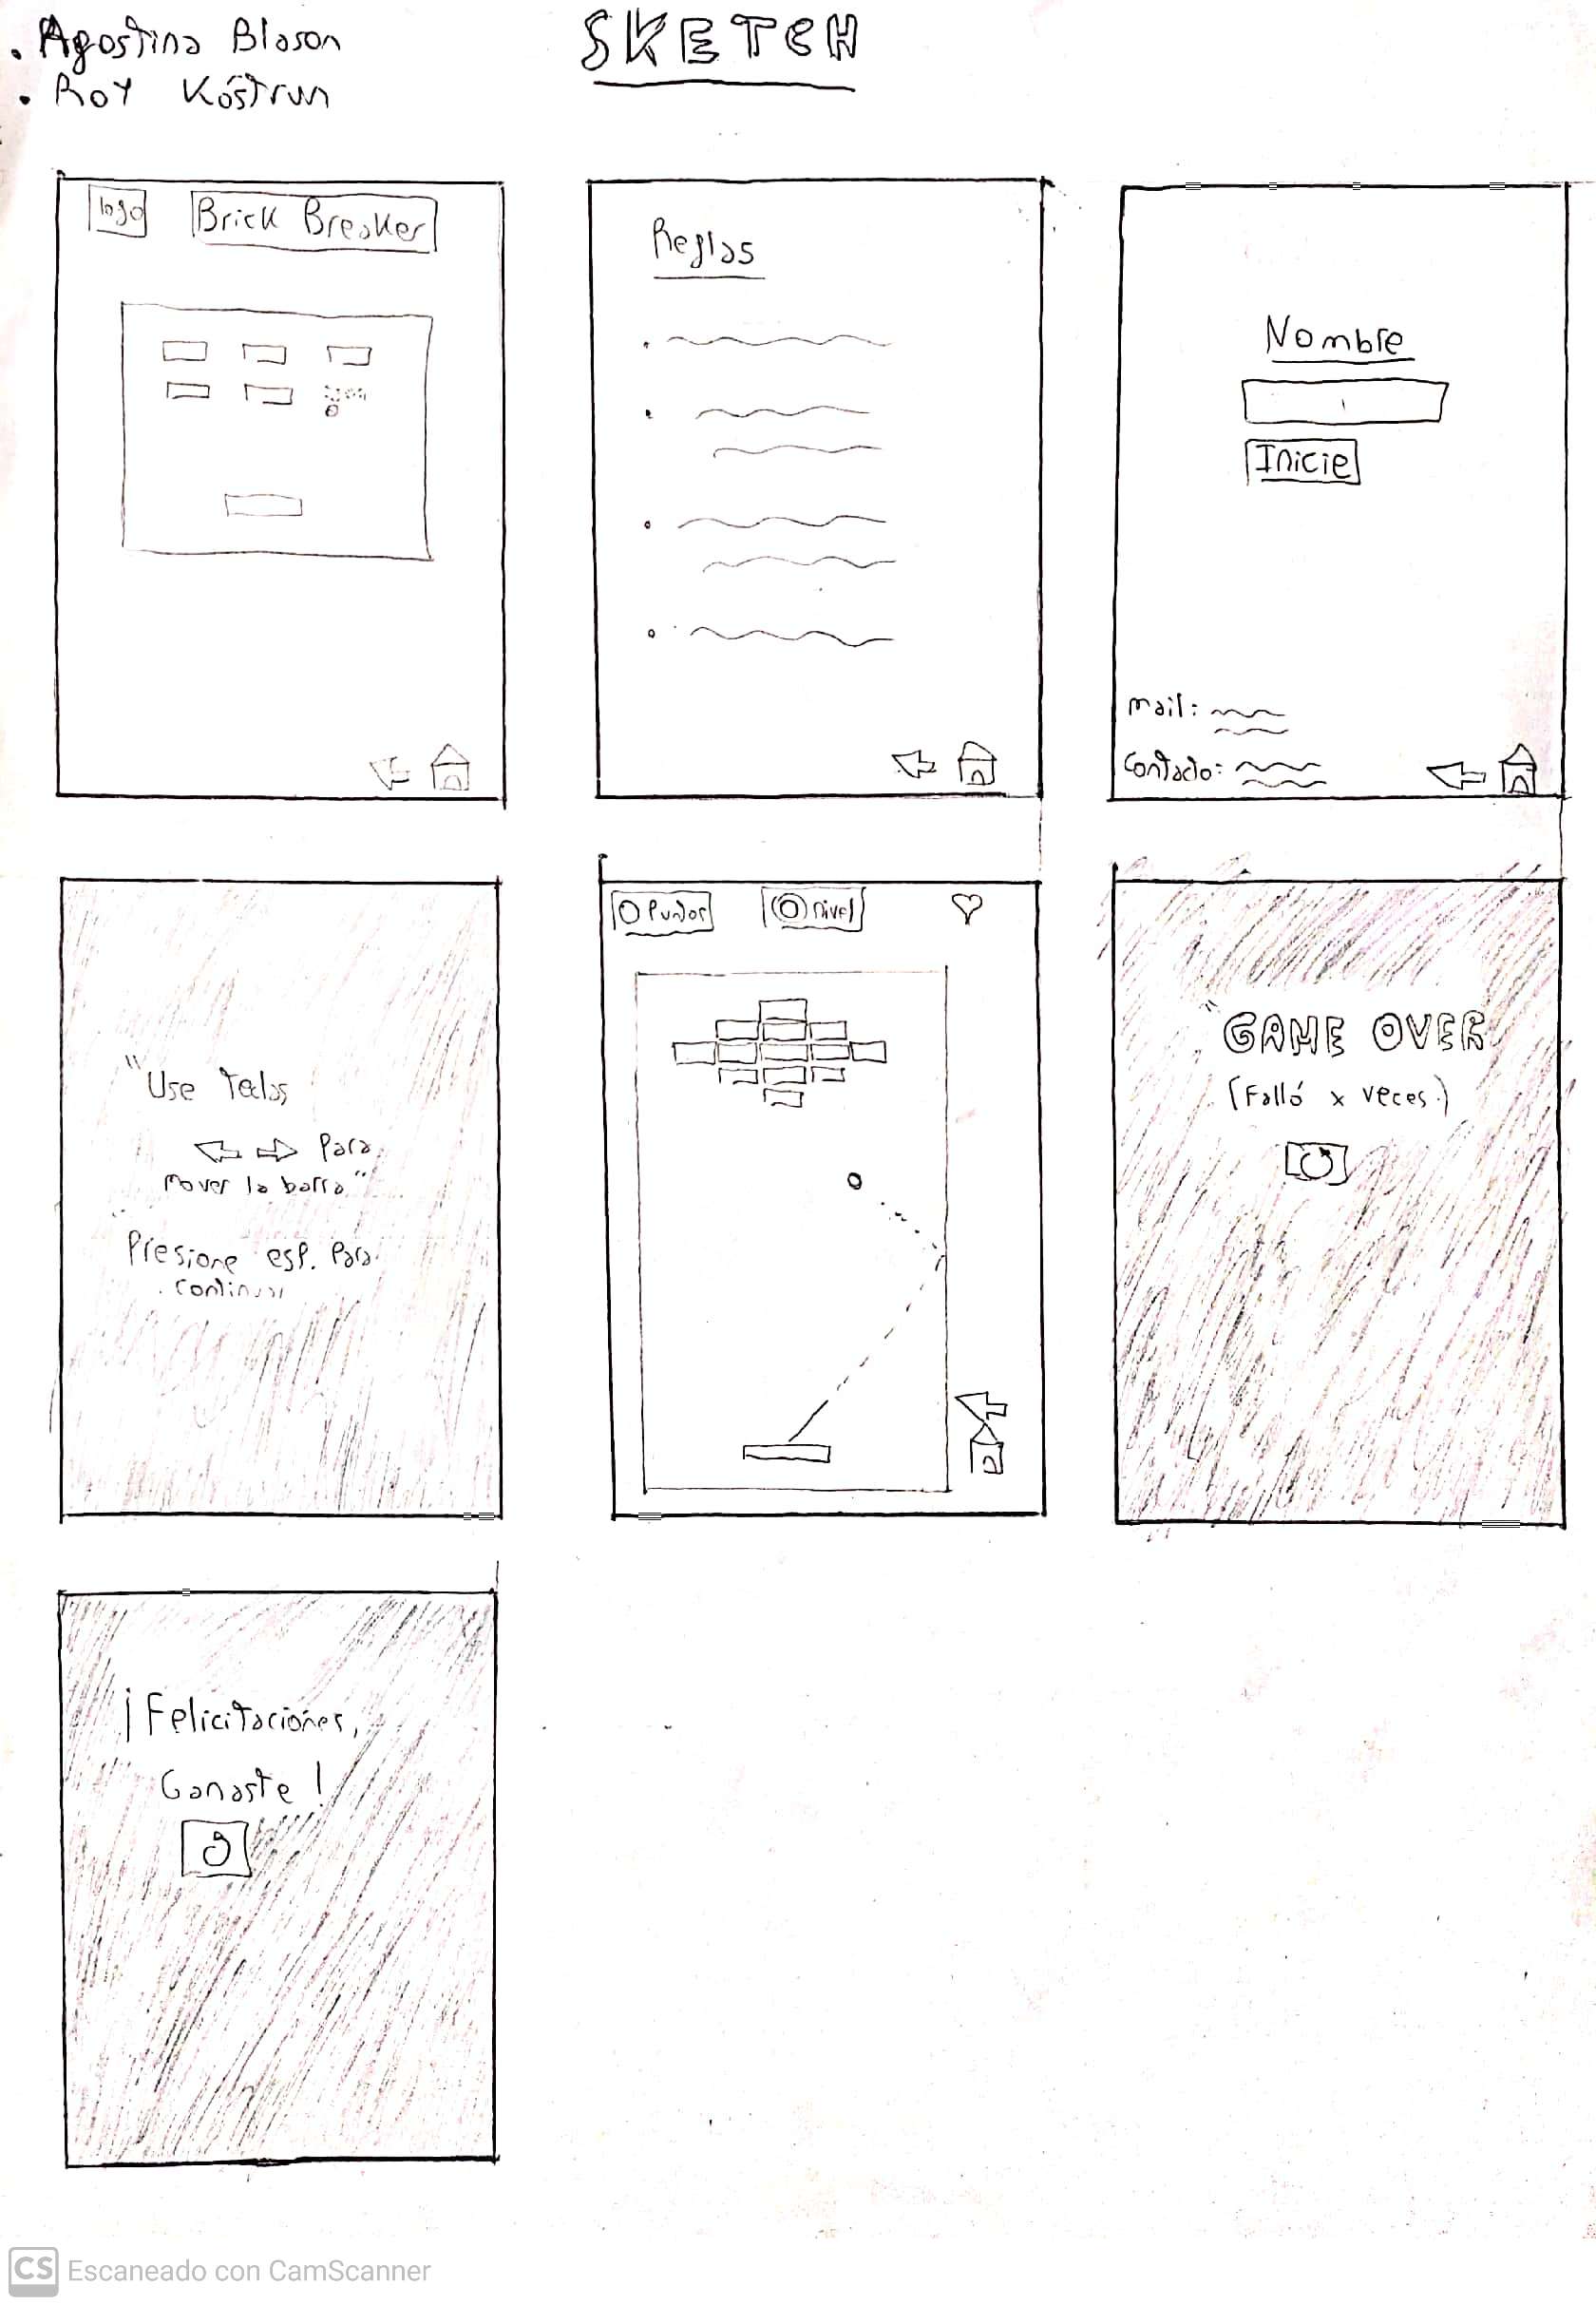 . Agostina Blason
. Roy Köstrun
SKETCH
logo
Brick Breaker
Reglas
Nombre
Inicie
mail:
Contacto:
"Use Teclas
Para
mover la barra"
Presione esp. Para
continuar
0 Puntos
0 nivel
"GAME OVER
(Falló x veces.)
¡Felicitaciones,
Ganaste!
CS Escaneado con CamScanner